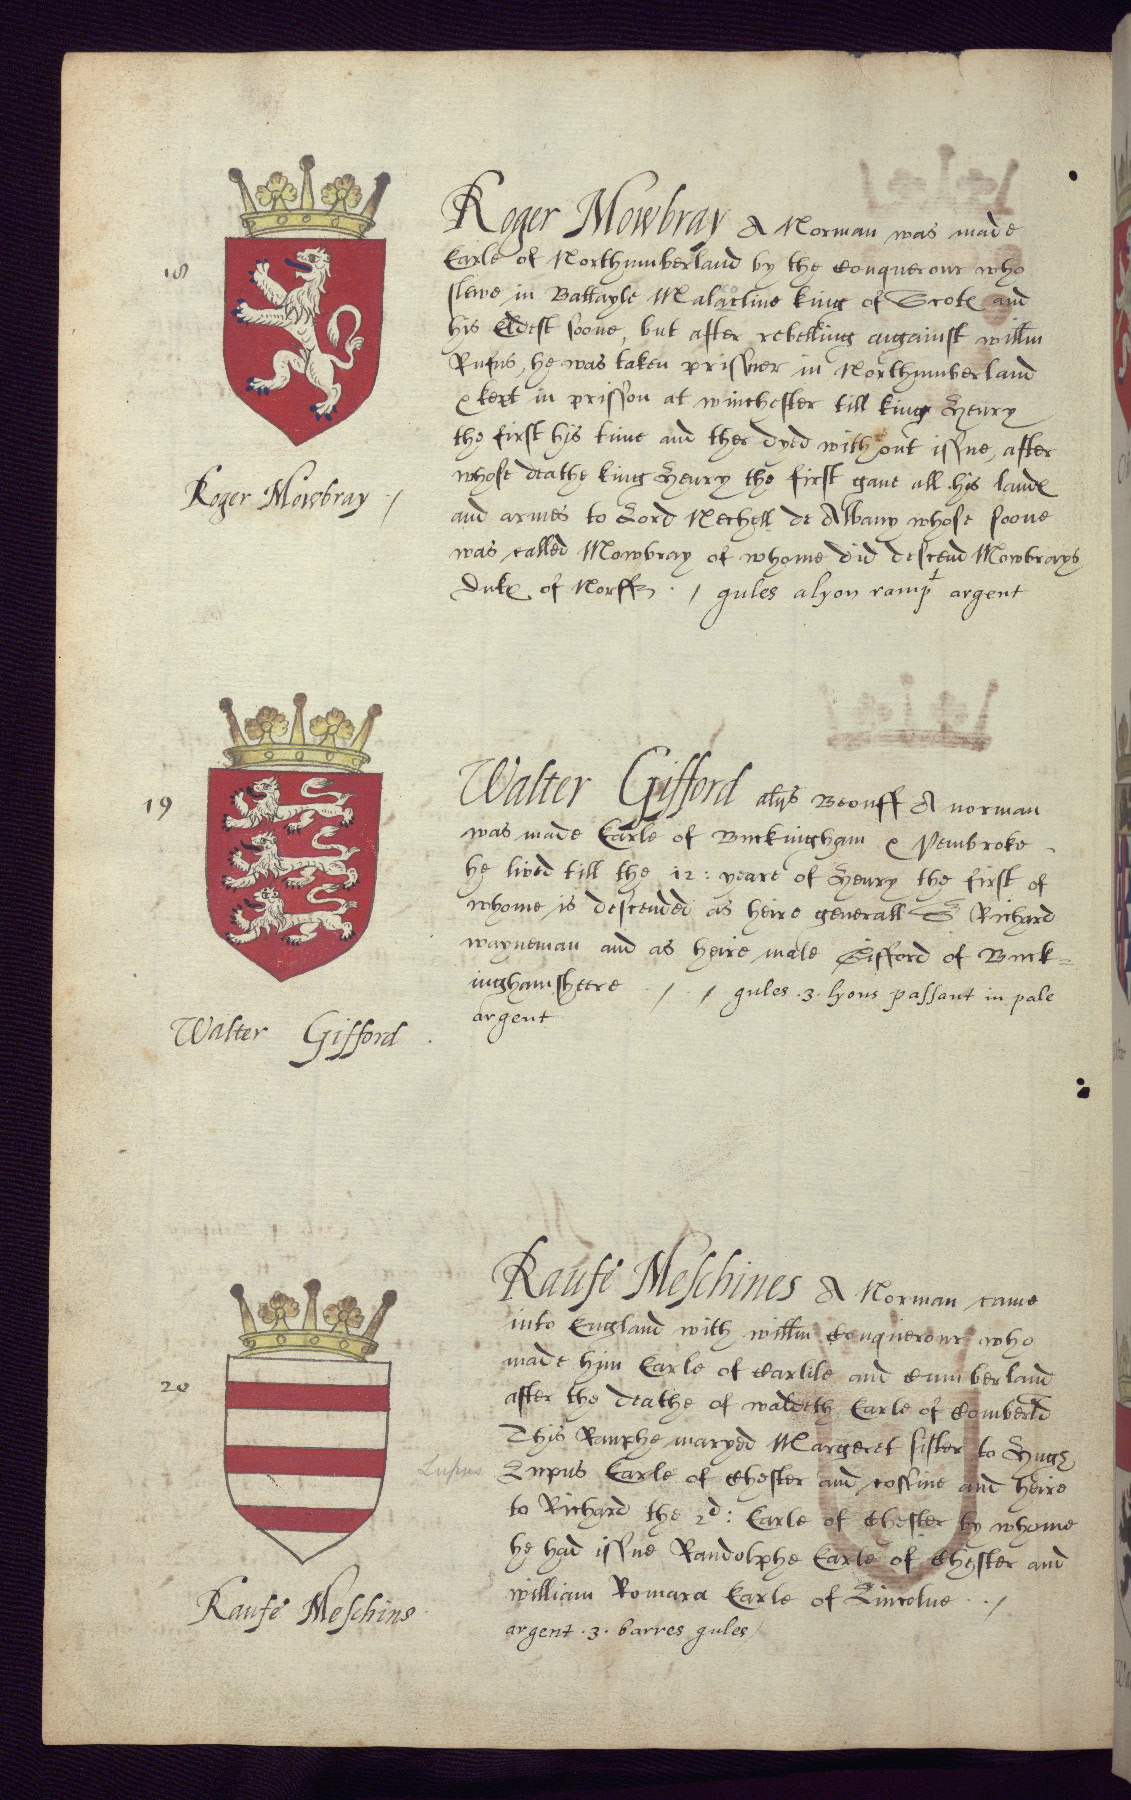 18
Roger Mowbray A Norman was made
Earle of Northumberland by the Conquerour who
slewe in Battayle Malacline king of Scotes and
his eldest soone, but after rebelling augainst willm
Rufus, he was taken prissner in Northumberland
& kept in prisson at winchester till king Henry
the first his time and ther dyed without issue, after
whose deathe king Henry the first gaue all his landes
and armes to Lord Nechell de Albany whose soone
was called Mowbray of whome did descend Mowbrays
Dukes of Norff · / gules a lyon rampt argent
Roger Mowbray · /
19
Walter Gifford alys Beouff A norman
was made Earle of Buckingham & Pembroke
he lived till the 12 : yeare of Henry the first of
whome is descended as heire generall S Richard
wayneman and as heire male Gifford of Buck=
inghamsheere / · / gules · 3 · lyons passant in pale
argent
Walter Gifford ·
20
Raufe Meschines A Norman came
into England with willm Conquerour who
made him Earle of Carlile and Cumberland
after the deathe of waldeth Earle of Comberld
This Rauphe maryed Margeret sister to Huge
Lupus
Lupus Earle of Chester and cossine and heire
to Richard the 2d : Earle of Chester by whome
he had issue Randolphe Earle of Chester and
william Romara Earle of Lincolne · · /
argent · 3 · barres gules /
Raufe Meschins ·